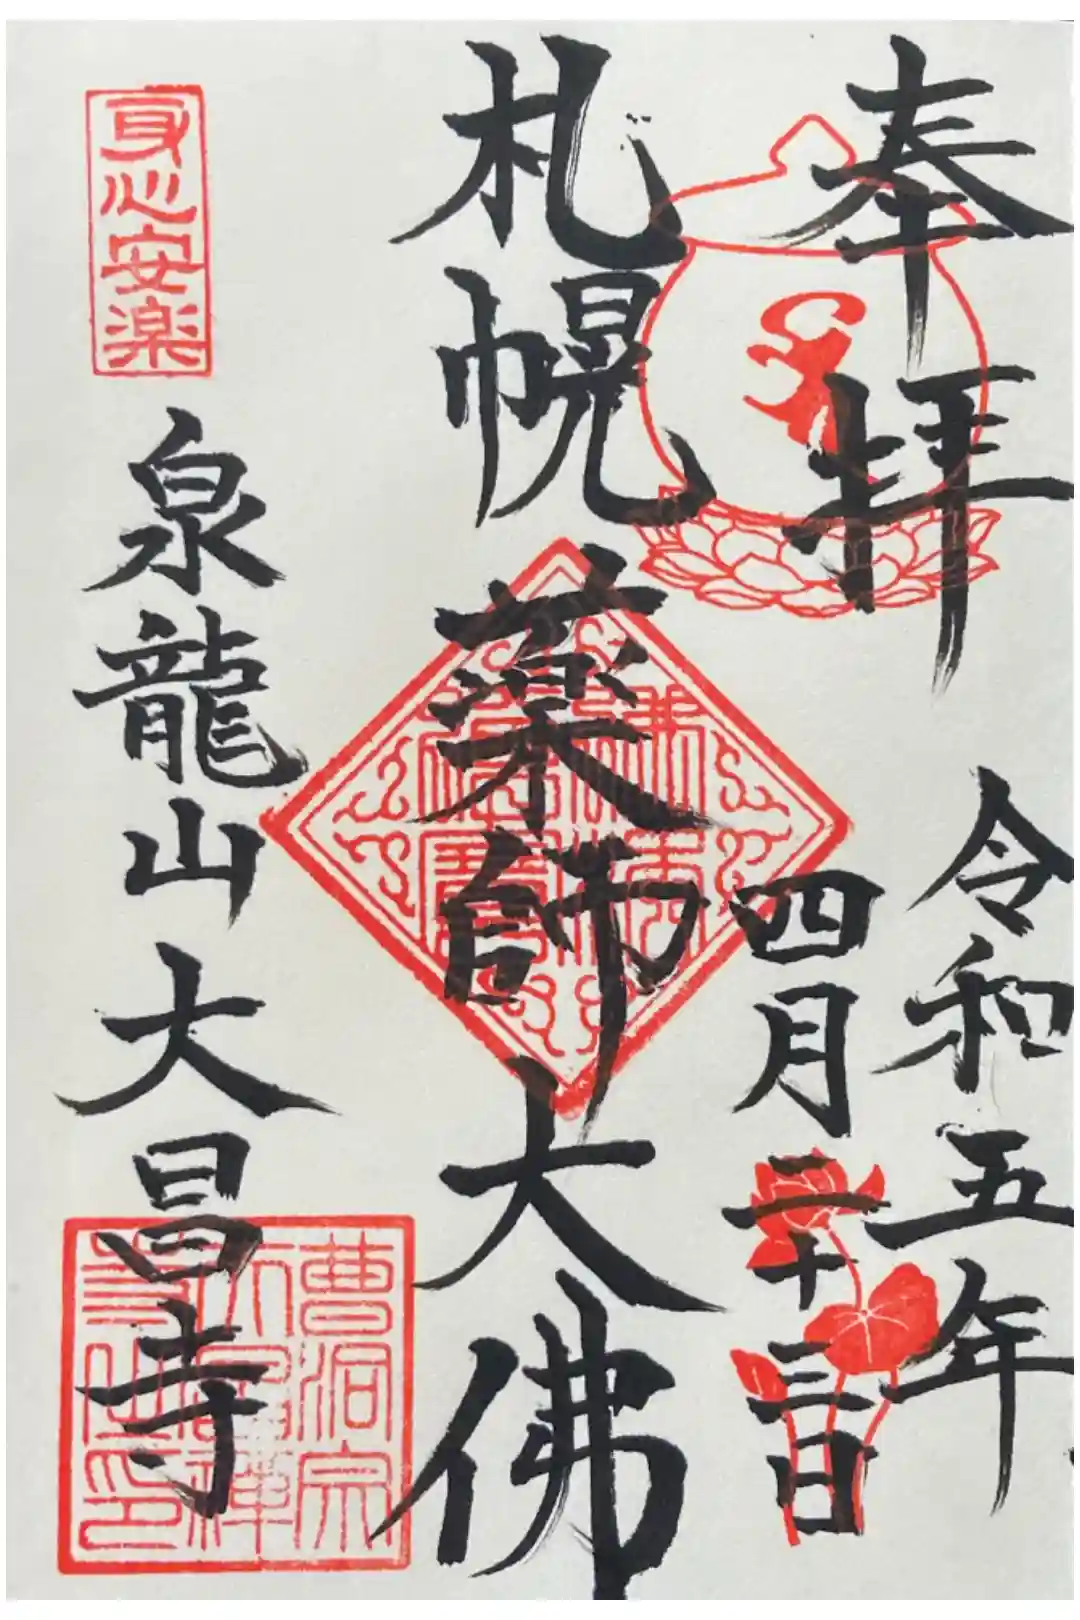 奉拝
令和五年
四月二十三日
札幌薬師大佛
佛法僧寶
身心安楽
泉龍山大昌寺
曹洞宗
大昌禅
寺之印